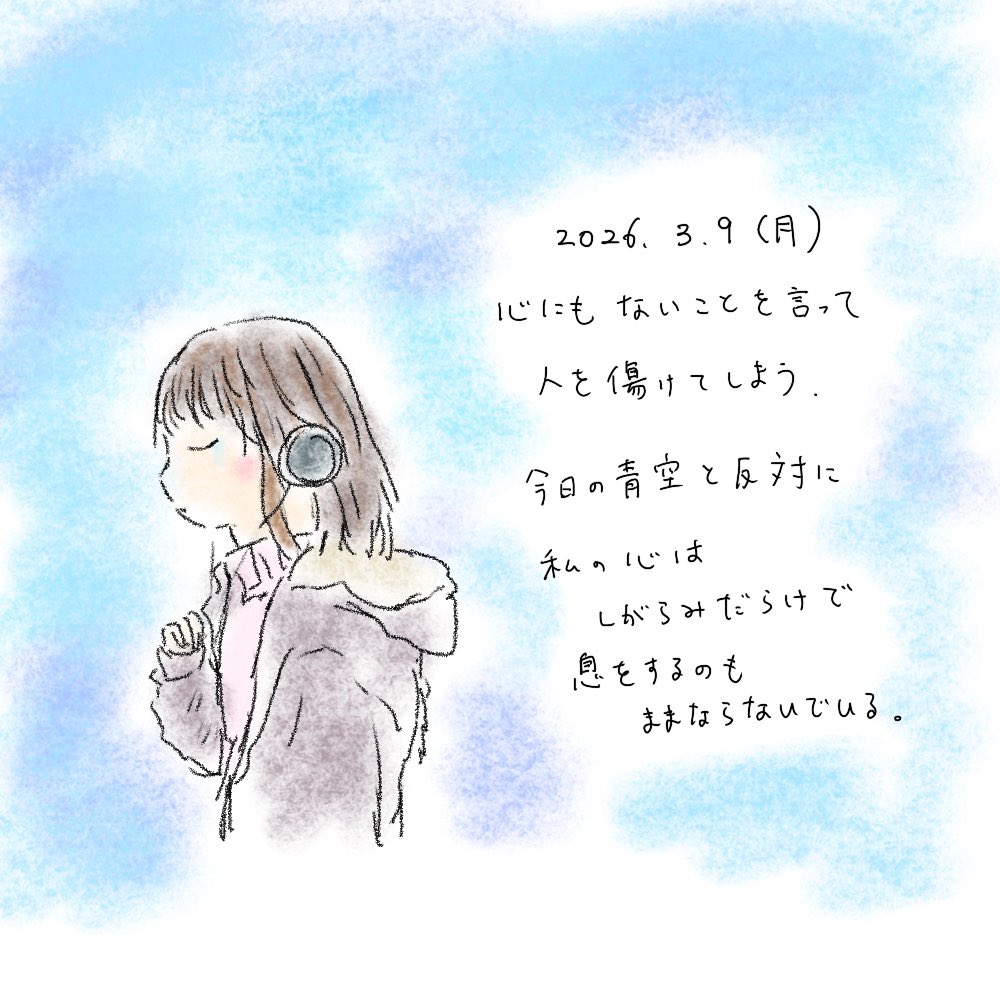 2026. 3.9(月)
心にもないことを言って
人を傷けてしまう.
今日の青空と反対に
私の心は
しがらみだらけで
息をするのも
ままならないでいる。